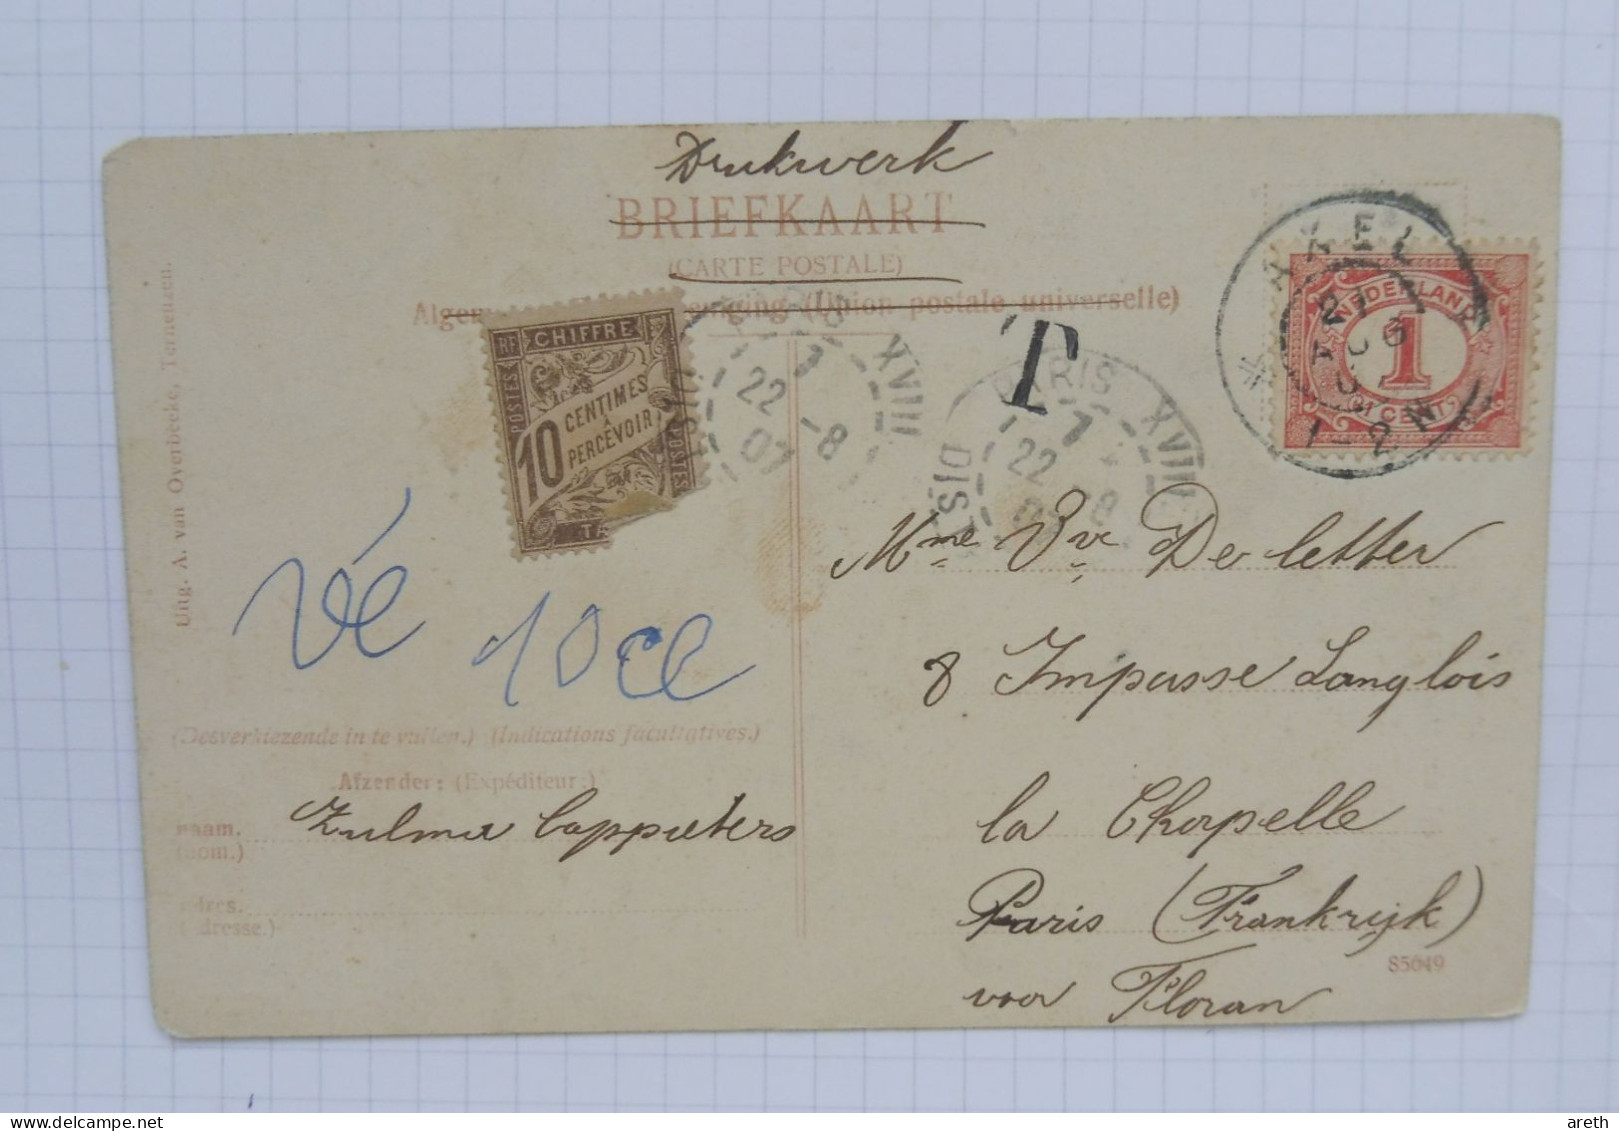 Drukwerk
BRIEFKAART
(CARTE POSTALE)
(Union postale universelle)
Uitg. A. van Overbeeke, Terneuzen.
RF CHIFFRE
POSTES
10 CENTIMES
À
PERCEVOIR
POSTES
PARIS XVIII
7
22 -8
07
DIST
T
PARIS XVIII
7
22
DIST
AXEL
21
NEDERLAND
1
CENT
1-2 N
Mme Vve De letter
8 Impasse Langlois
la Chapelle
Paris (Frankrijk)
voor Floran
Vé 10
(Desverkiezende in te vullen.) (Indications facultatives.)
Afzender: (Expéditeur:)
naam.
(nom.)
Zulma Cappieters
adres.
(adresse.)
85049
delcampe.net
areth